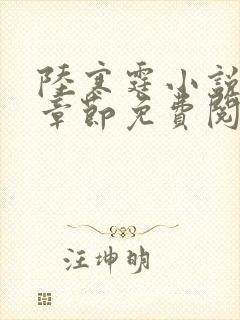 陸寒霆小說
章節免費閱
汪坤明